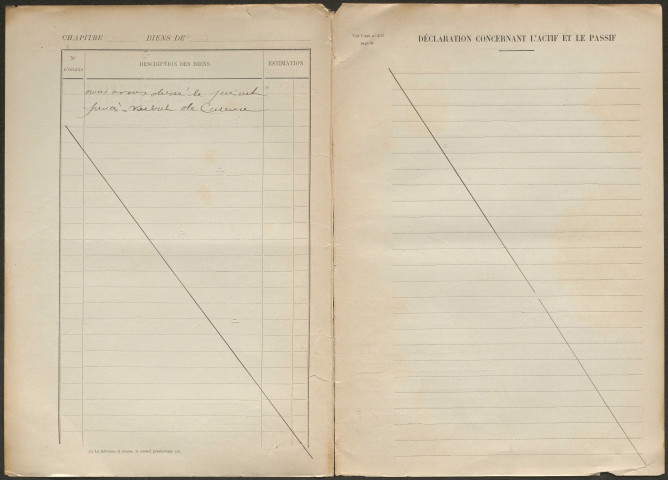 CHAPITRE BIENS DE
N°
d'ordre
DESCRIPTION DES BIENS
ESTIMATION
nous avons dressé le présent
procès-verbal de Carence
DÉCLARATION CONCERNANT L'ACTIF ET LE PASSIF